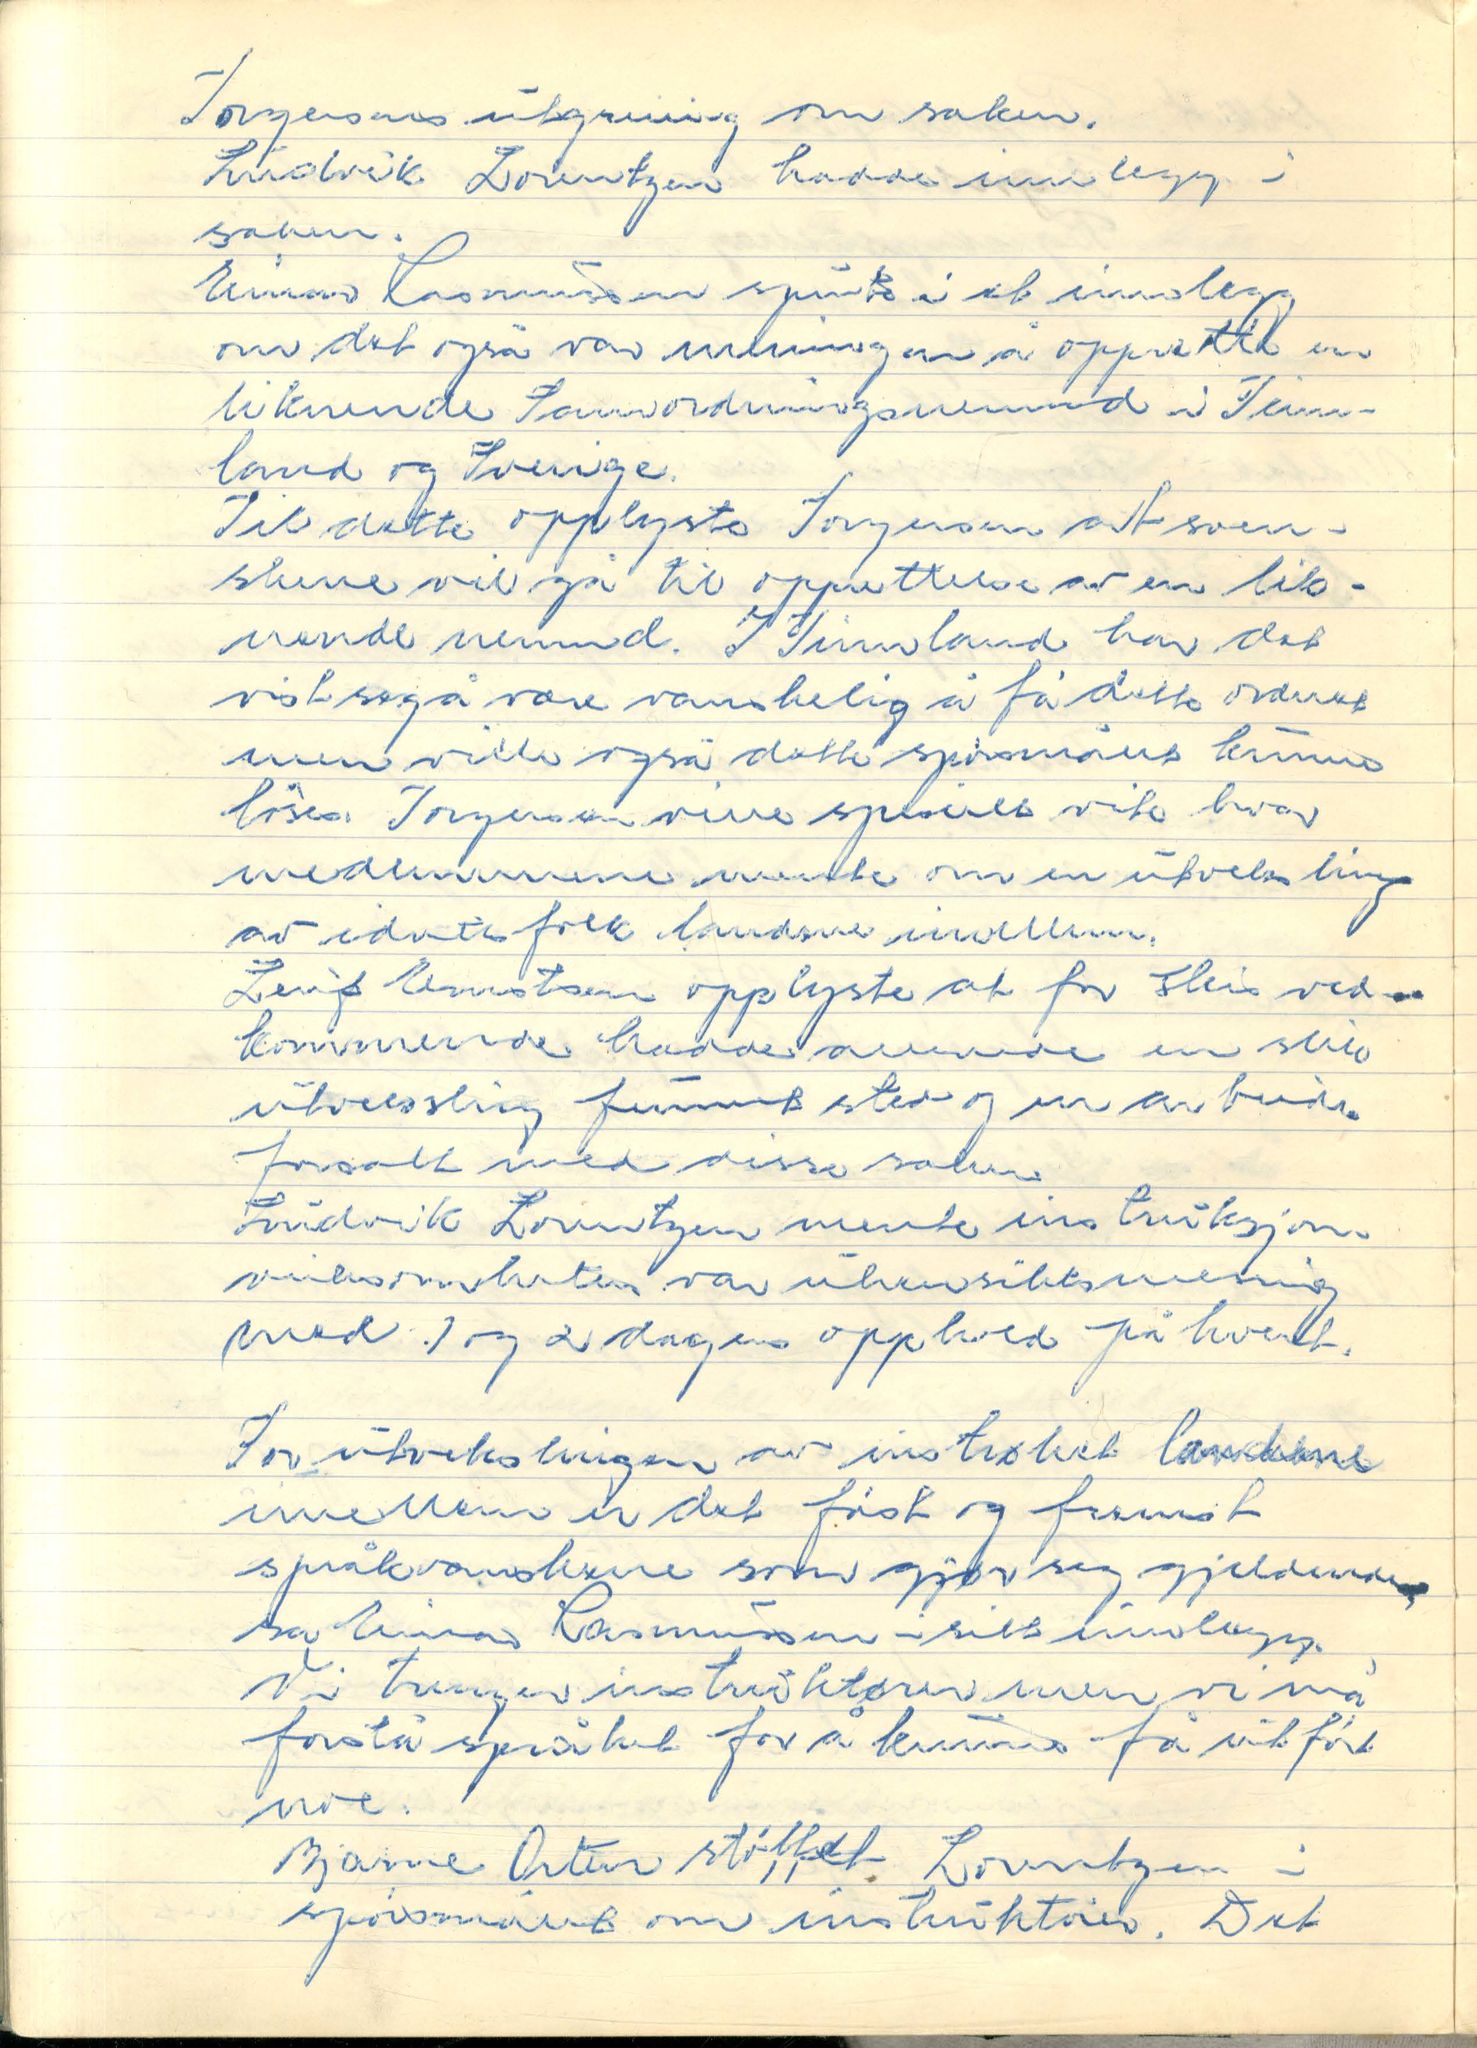 Torgersens utgreiing om saken.
Ludvik Lorentzen hadde innlegg i
saken.
Einar Rasmussen spurte i et innlegg
om det også var meiningen å opprette en
liknende Samordningsnemnd i Finn-
land og Sverige.
Til dette opplyste Torgersen at sven-
skene vil gå til opprettelse av en lik-
nende nemnd. I Finnland har det
vist seg å være vanskelig å få dette ordnet
men ville også dette spørsmålet kunne
løses. Torgersen ville spesielt vite hva
medlemmene mente om en utveksling
av idrettsfolk landene imellom.
Leif Ernstsen opplyste at for Skis ved-
kommende hadde allerede en slik
utveksling funnet sted og en arbeider
forsatt med disse saker.
Ludvik Lorentzen mente instruksjons
virksomheten var uhensiktsmessig
med 1 og 2 dagers opphold på hvert.
For utvekslingen av instruktører landene
imellem er det først og fremst
språkvanskene som gjør seg gjeldende,
sa Einar Rasmussen i sitt innlegg.
Vi trenger instruktører men vi må
forstå språket for å kunne få utført
noe.
Bjarne Orten støttet Lorentzen i
spørsmålet om instruktører. Det